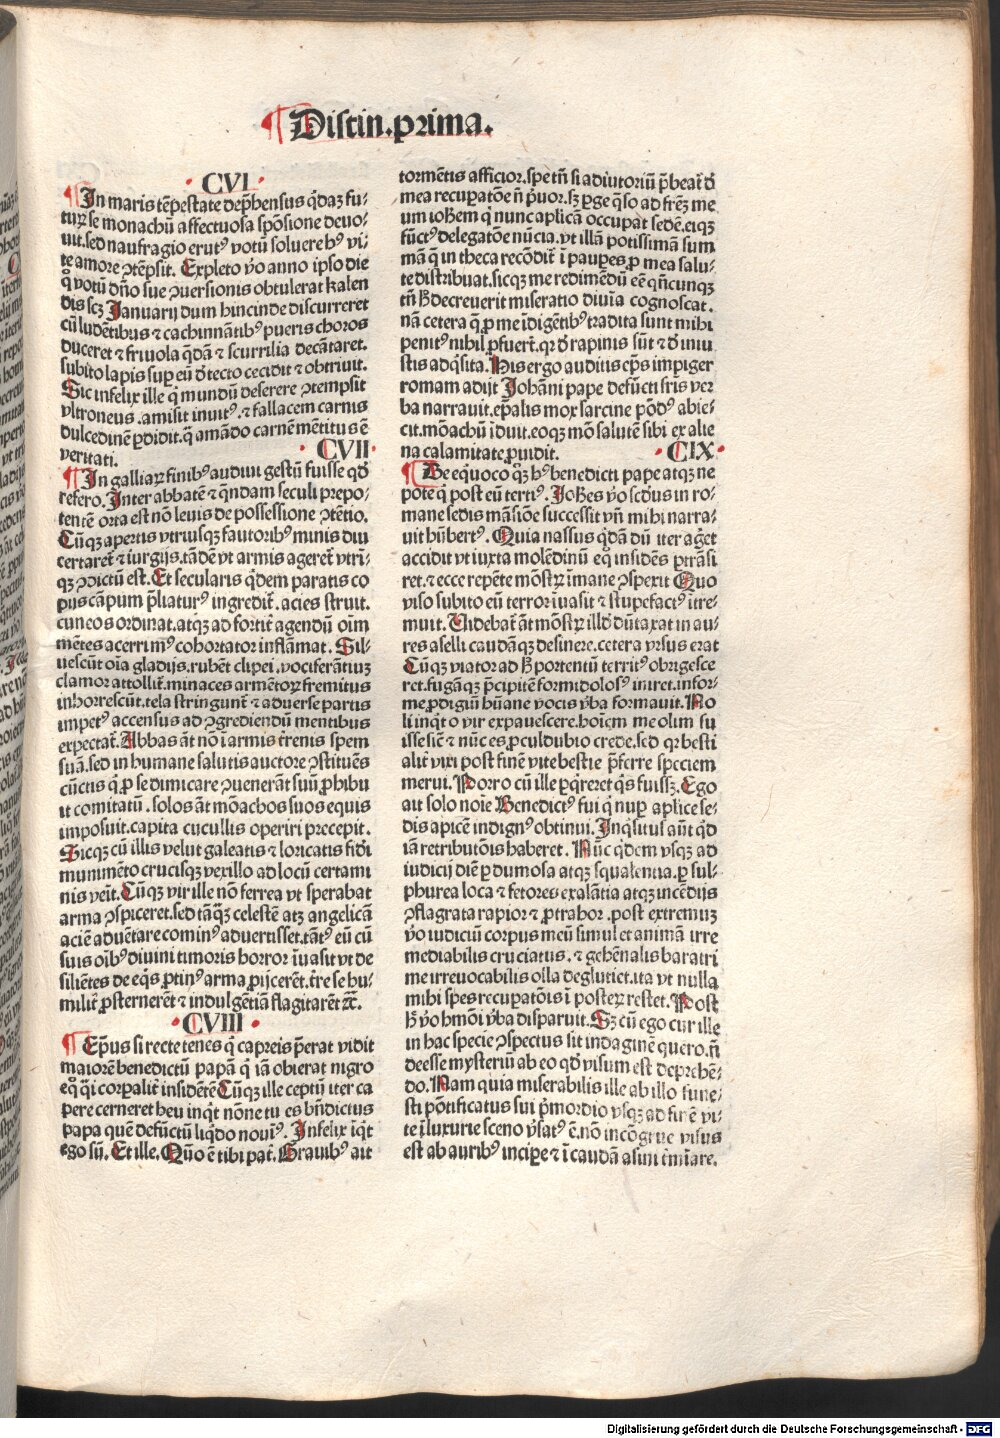 ¶ Distin.prima.
·CVI·
¶ In maris tẽpestate dep̃hensus q̃daʒ fu-
turꝝ se monachũ affectuosa spõsione deuo-
uit.sed naufragio erutꝰ votũ soluere hꝰ vi-
te amore ↄtẽpsit. Expleto ṽo anno ipso die
q̊ votũ dño sue ↄuersionis obtulerat kalen
dis scʒ Januarij dum hincinde discurreret
cũ ludẽtibus ⁊ cachinnãtibꝰ pueris choros
duceret ⁊ friuola q̃dã ⁊ scurrilia decãtaret.
subito lapis sup eũ d̃ tecto cecidit ⁊ obtriuit.
Sic infelix ille q̇ mundũ deserere ↄtempsit
vltroneus .amisit inuitꝰ .⁊ fallacem carnis
dulcedinẽ ꝑdidit. q̃ amãdo carnẽ mẽtitus ẽ
veritati.
·CVII·
¶ In galliaꝝ finibꝰ audiui gestũ fuisse qd̃
refero. Inter abbatẽ ⁊ q̃ndam seculi prepo-
tentẽ orta est nõ leuis de possessione ↄtẽtio.
Cũqʒ apertis vtriusqʒ fautoribꝰ minis diu
certaret̃ ⁊ iurgijs. tãdẽ vt armis ageret̃ vtri-
qʒ ↄdictũ est. Et secularis q̇dem paratis co
pijs cãpum p̃liaturꝰ ingredit̃. acies struit.
cuneos ordinat. atqʒ ad fortit̃ agendũ oĩm
mẽtes acerrimꝰ cohortator inflãmat. Sil-
uescũt oĩa gladijs. rubẽt clipei. vociferãtiuʒ
clamor attollit̃. minaces armẽtoꝝ fremitus
inhorrescũt. tela stringunt̃ ⁊ aduerse partis
impetꝰ accensus ad ↄgrediendũ mentibus
expectat̃. Abbas ãt nõ ĩ armis t̃renis spem
suã. sed in humane salutis auctore ↄstituẽs
cũctis q̇ ꝓ se dimicare ↄuenerãt suũ ꝓhibu
it comitatũ. solos ãt mõachos suos equis
imposuit. capita cucullis operiri precepit.
Sicqʒ cũ illis velut galeatis ⁊ loricatis fid̃i
munimẽto crucisqʒ vexillo ad locũ certami
nis veñit. Cũqʒ vir ille nõ ferrea vt sperabat
arma ↄspiceret. sed tãq̃ʒ celestẽ atqʒ angelicã
aciẽ aduẽtare cominꝰ aduertisset. tãtꝰ eũ cũ
suis oĩbꝰ diuini timoris horror ĩuasit vt de
siliẽtes de eq̇s ꝓtinꝰ arma ꝓijcerẽt. t̃re se hu-
milit̃ ꝓsternerẽt ⁊ indulgẽtiã flagitarẽt ⁊c̃.
·CVIII·
¶ Ep̃us si recte tenes q̇ capreis p̃erat vidit
maiorẽ benedictũ papã q̇ iã obierat nigro
eq̊ q̃i corꝑalit̃ insidẽtẽ Cũqʒ ille ceptũ iter ca
pere cerneret heu inq̇t nõne tu es bñdictus
papa quẽ defũctũ liq̇do nouimꝰ. Infelix ĩq̇t
ego sũ. Et ille. Quo ẽ tibi pat̃. Grauibꝰ ait
tormẽtis afficior. spe tñ si adiutoriũ p̃beat̃ d̃
mea recupatõe ñ p̃uor. sʒ ꝑge q̃so ad frẽʒ me
um ioh̃em q̇ nunc aplicã occupat sedẽ. eiqʒ
fũctꝰ delegatõe nũcia. vt illã potissimã sum
mã q̃ in theca recõdit̃ ĩ paupes ꝓ mea salu-
te distribuat. sicqʒ me redimẽdũ eẽ qñcunqʒ
tñ h̃ decreuerit miseratio diuĩa cognoscat.
nã cetera q̃ ꝓ me ĩdigẽtibꝰ tradita sunt mihi
penitꝰ nihil ꝓfuerũt. qr d̃ rapinis sũt ⁊ d̃ iniu
stis adq̃sita. His ergo auditis ep̃s impiger
romam adijt Johãni pape defũcti fr̃is ver
ba narrauit. ep̃alis mox sarcine põdꝰ abie-
cit. mõachũ ĩduit. eoqʒ mõ salutẽ sibi ex alie
na calamitate ꝓuidit.
·CIX·
¶ De eq̃uoco q̇ʒ hꝰ benedicti pape atqʒ ne
pote q̇ post eũ tertiꝰ. Joh̃es ṽo scd̃us in ro-
mane sedis mãsiõe successit vñ mihi narra-
uit hũbertꝰ. Quia nassus q̃dã dũ iter aget̃
accidit vt iuxta molẽdinũ eq̊ insidẽs ptrãsi
ret. ⁊ ecce repẽte mõstꝝ ĩmane ↄspexit Quo
viso subito eũ terror ĩuasit ⁊ stupefactꝰ ĩtre-
muit. Uidebat̃ ãt mõstꝝ illd̃ dũtaxat in au-
res aselli caudãqʒ desinere. cetera vrsus erat
Cũqʒ viator ad h̃ portentũ territꝰ obrigesce
ret. fugãqʒ p̃cipitẽ formidolosꝰ iniret. infor-
me ꝓdigiũ hũane vocis ṽba formauit. No
li inq̇t o vir expauescere. hoĩem me olim fu
isse sic̃ ⁊ nũc es ꝓculdubio crede. sed qr besti
alit̃ vixi post finẽ vite bestie p̃ferre speciem
merui. Porro cũ ille ꝑq̃reret q̇s fuissʒ. Ego
ait solo noĩe Benedictꝰ fui q̇ nup aplice se-
dis apicẽ indignꝰ obtinui. Inq̃situs aũt qd̃
iã retributiõis haberet. Nũc q̇dem vsqʒ ad
iudicij diẽ ꝑ dumosa atqʒ squalentia. ꝑ sul-
phurea loca ⁊ fetores exalãtia atqʒ incẽdijs
ↄflagrata rapior ⁊ ꝓtrahor. post extremuʒ
ṽo iudiciũ corpus meũ simul et animã irre
mediabilis cruciatus. ⁊ gehẽnalis baratri
me irreuocabilis olla deglutiet. ita vt nulla
mihi spes recupatõis ĩ posteꝝ restet. Post
h̃ ṽo hmõi ṽba disparuit. Sʒ cũ ego cur ille
in hac specie ↄspectus sit indaginẽ quero. ñ
deesse mysteriũ ab eo qd̃ visum est deprehẽ-
do. Nam quia miserabilis ille ab illo fune-
sti põtificatus sui p̃mordio vsqʒ ad finẽ vi-
te ĩ luxurie sceno ṽsatꝰ ẽ. nõ incõgrue visus
est ab auribꝰ incipe ⁊ ĩ caudã asini t̃minare.
Digitalisierung gefördert durch die Deutsche Forschungsgemeinschaft - DFG